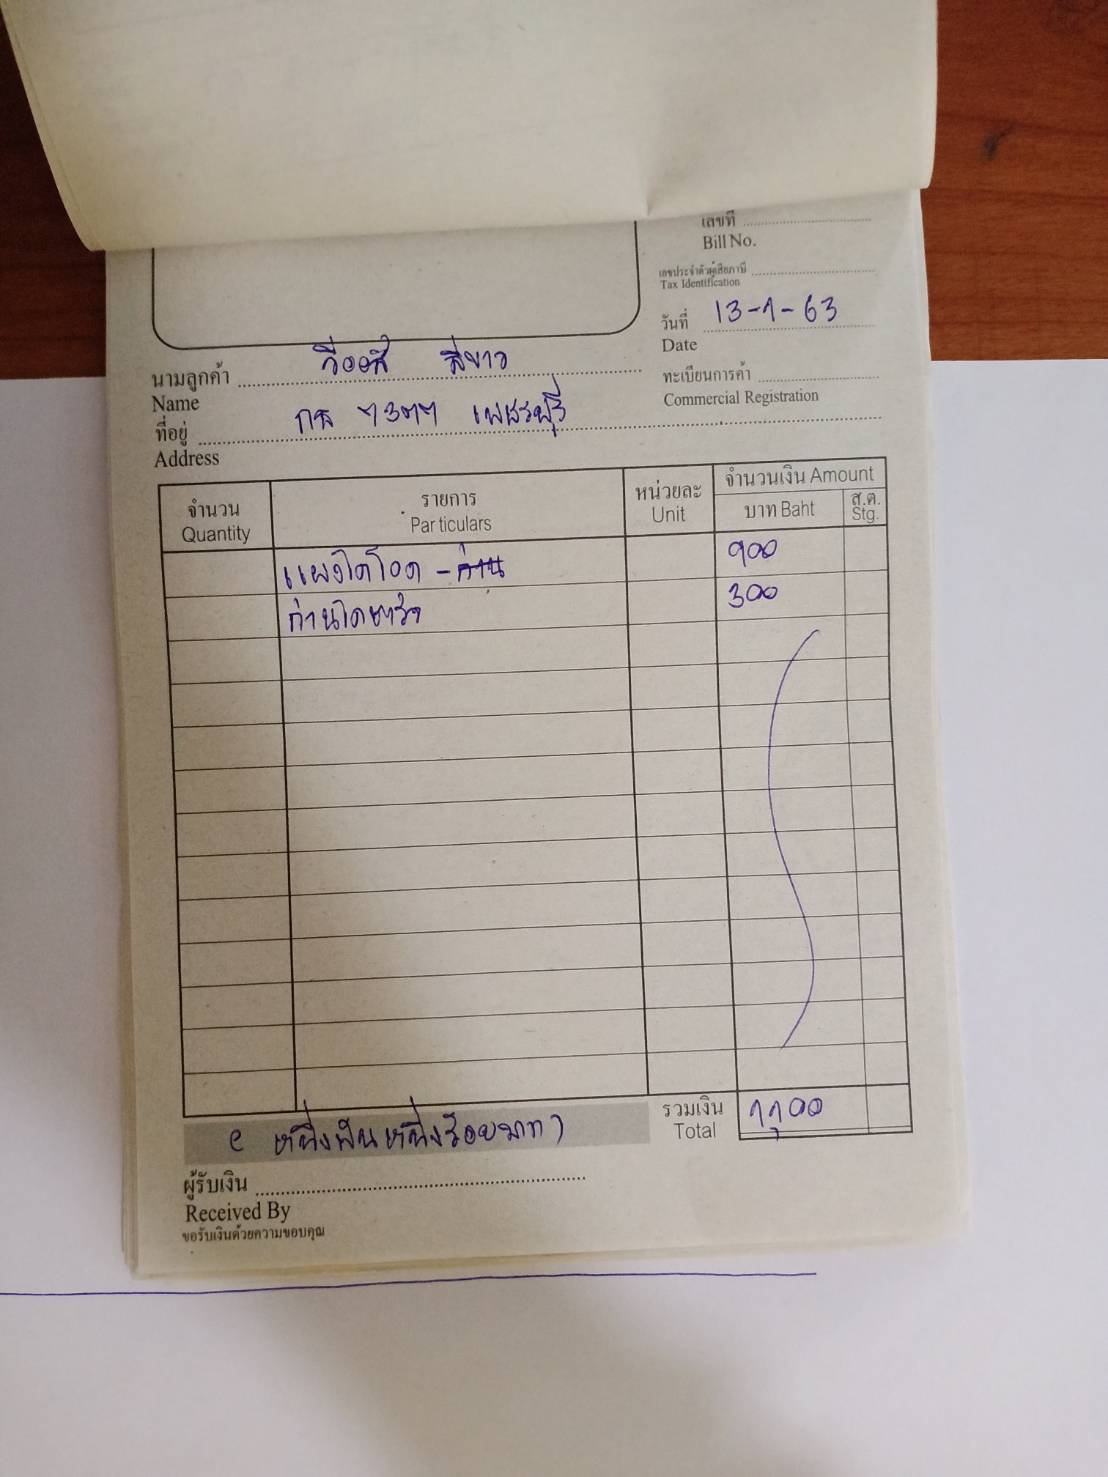 เลขที่
Bill No.
เลขประจำตัวผู้เสียภาษี
Tax Identification
วันที่ 13-1-63
Date
นามลูกค้า วีออส สีขาว
Name
ทะเบียนการค้า
Commercial Registration
ที่อยู่ กธ 7377 เพชรบุรี
Address
จำนวน รายการ หน่วยละ จำนวนเงิน Amount
Quantity Particulars Unit บาท Baht ส.ต. Stg.
แผงไดโอด - ถ่าน 900
ถ่านไดชาร์จ 300
รวมเงิน 1100
Total
( หนึ่งพันหนึ่งร้อยบาท )
ผู้รับเงิน
Received By
ขอรับเงินด้วยความขอบคุณ